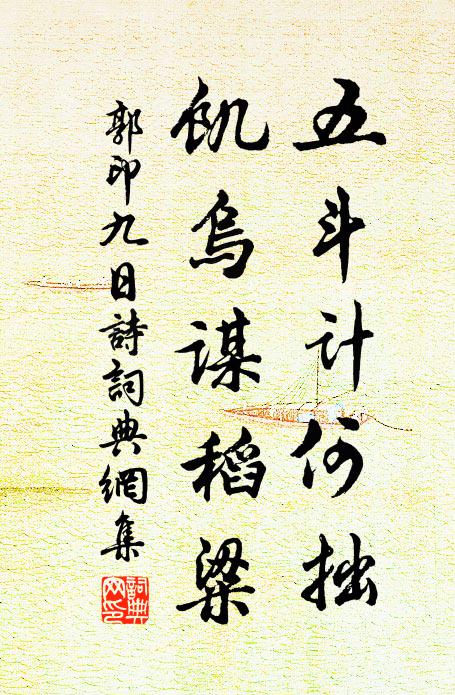 五斗计何拙
飢乌謀稻粱
郭印九日詩詞典網集
詞典
网印